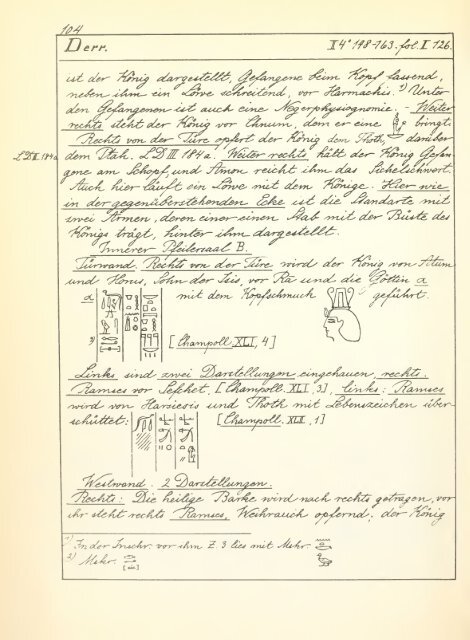 104
Derr. II 4° 148-163. fol. I 126.
ist der König dargestellt, Gefangene beim Kopf fassend,
neben ihm ein Löwe schreitend, vor Harmachis. 1) Unter
den Gefangenen ist auch eine Negerphysiognomie. - Weiter
rechts steht der König vor Chnum, dem er eine bringt.
Rechts von der Türe opfert der König dem Thoth, darüber
LD III 184a dem Ptah. LD III 184a. Weiter rechts hält der König Gefan
gene am Schopf, und Amon reicht ihm das Sichelschwert.
Auch hier läuft ein Löwe mit dem Könige. Hier wie
in der gegenüberstehenden Ecke ist die Standarte mit
zwei Armen, deren einer einen Stab mit der Büste des
Königs trägt, hinter ihm dargestellt.
Innerer Pfeilersaal B.
Türwand. Rechts von der Türe wird der König von Atum
und Horus, Sohn der Isis, vor Ra und die Göttin a
a mit dem Kopfschmuck geführt.
2) [Champoll. XLI, 4]
Links sind zwei Darstellungen eingehauen, rechts:
Ramses vor Sefchet, [Champoll. XLI, 3], links: Ramses
wird von Harsiesis und Thoth mit Lebenszeichen über-
schüttet: [Champoll. XLII, 1]
Westwand. 2 Darstellungen.
Rechts: Die heilige Barke wird nach rechts getragen, vor
ihr steht rechts Ramses, Weihrauch opfernd; der König
1) In der Inschr. vor ihm Z. 3 lies mit Mskr.
2) Mskr.